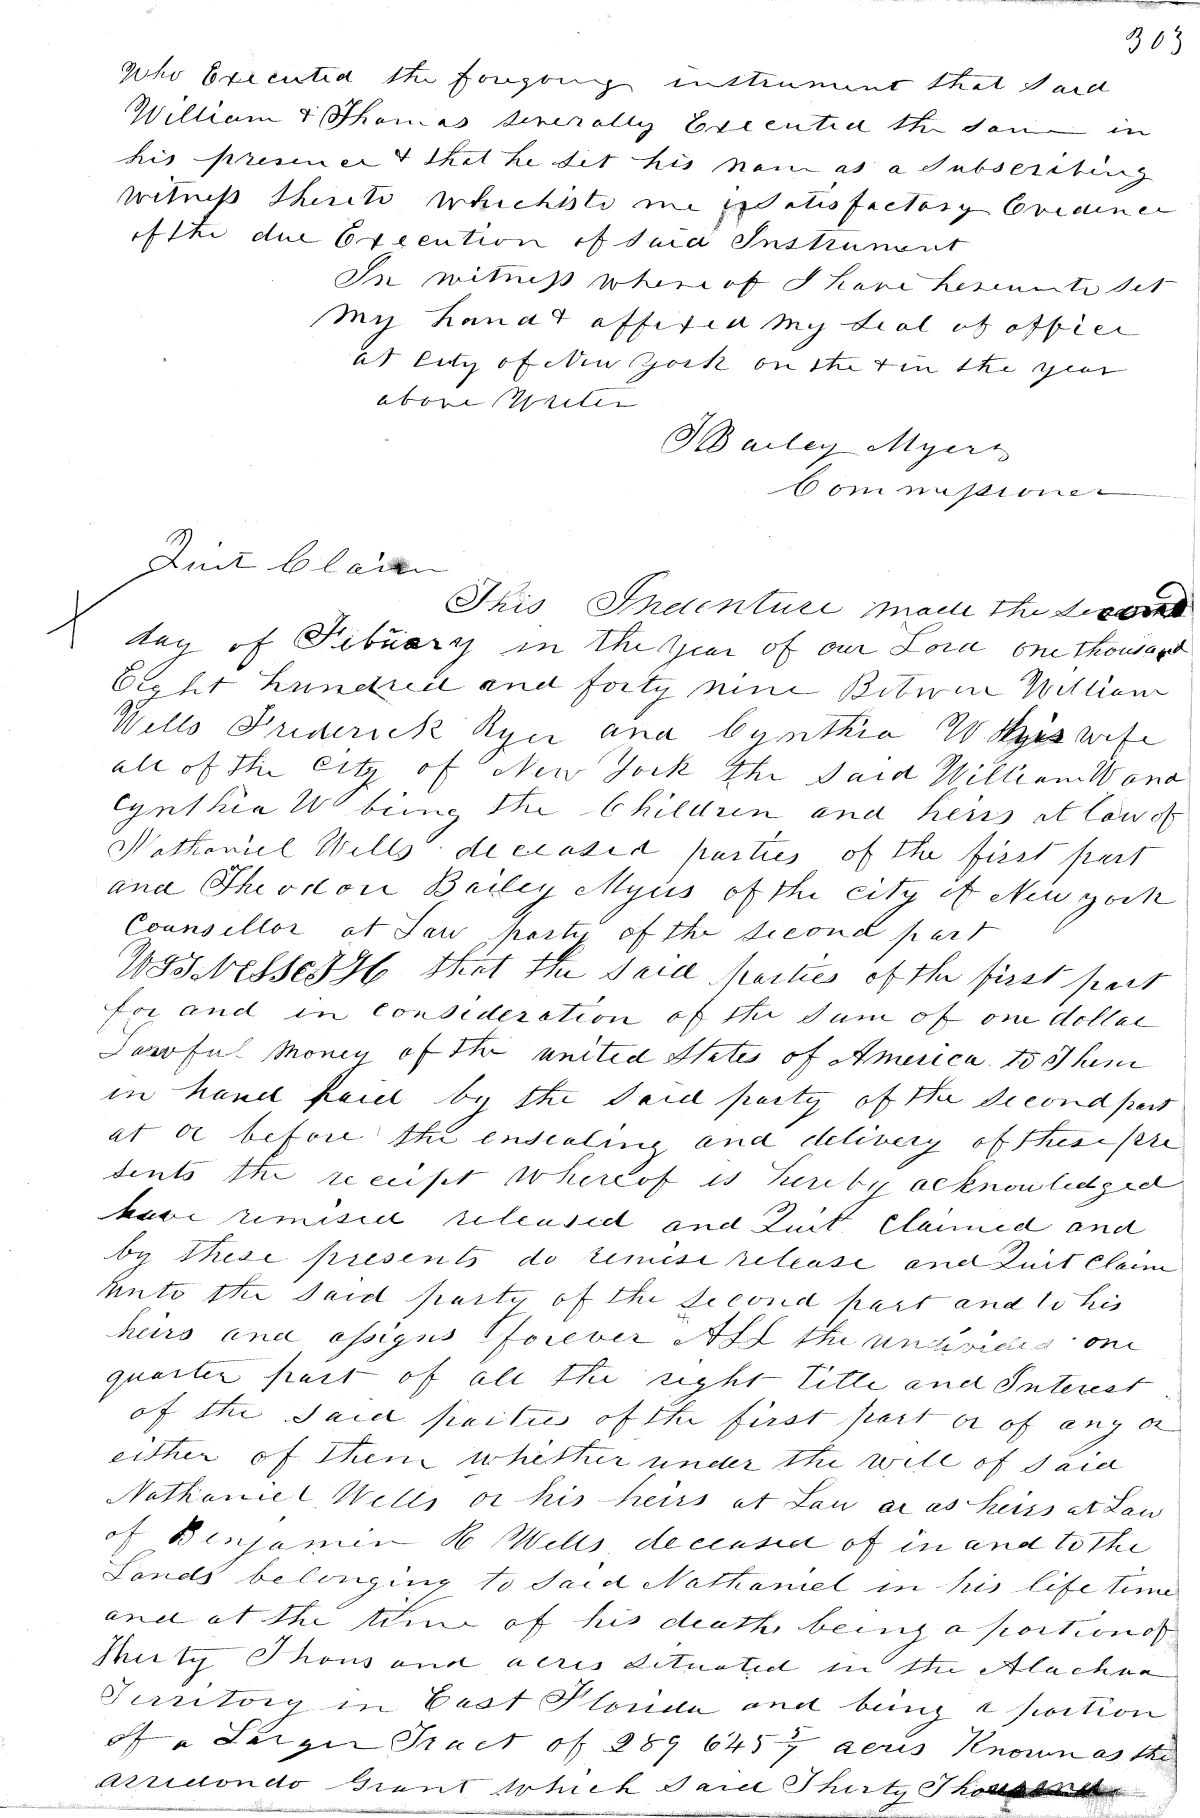 303
Who Executed the foregoing instrument that said
William & Thomas severally Executed the same in
his presence & that he set his name as a Subscribing
witness thereto which is to me Satisfactory Evidence
of the due Execution of said Instrument
In witness where of I have hereunto set
My hand & affixed My Seal of office
at City of New York on the & in the year
above Writen
T Bailey Myers
Commissioner
Quit Claim
This Indenture made the second
day of Febuary in the Year of our Lord one thousand
Eight hundred and forty nine Between William
Wells Frederick Ryer and Cynthia W his wife
all of the City of New York the Said William W and
Cynthia W being the Children and heirs at law of
Nathaniel Wells deceased parties of the first part
and Theodore Bailey Myers of the city of New york
Counsellor at Law party of the second part
WITNesseTH that the said parties of the first part
for and in consideration of the sum of one dollar
Lawful Money of the united States of America to Them
in hand paid by the said party of the second part
at or before the ensealing and delivery of these pre
sents the receipt whereof is hereby acknowledged
have remised released and Quit Claimed and
by these presents do remise release and Quit claim
unto the said party of the second part and to his
heirs and assigns forever ALL the undivided one
quarter part of all the right Title and Interest
of the said parties of the first part or of any or
either of them whether under the will of said
Nathaniel Wells or his heirs at Law or as heirs at Law
of Benjamin H Wells deceased of in and to the
Lands belonging to said Nathaniel in his life time
and at the time of his death being a portion of
Thirty Thousand acres situated in the Alachua
Territory in East Florida and being a portion
of a Larger Tract of 289 645 5/7 acres Known as the
arredondo Grant which said Thirty Thousand